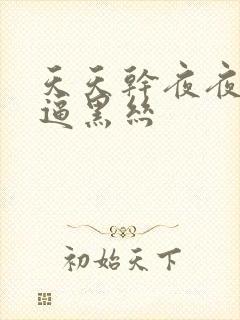 天天幹夜夜
逼黑絲
初始天下